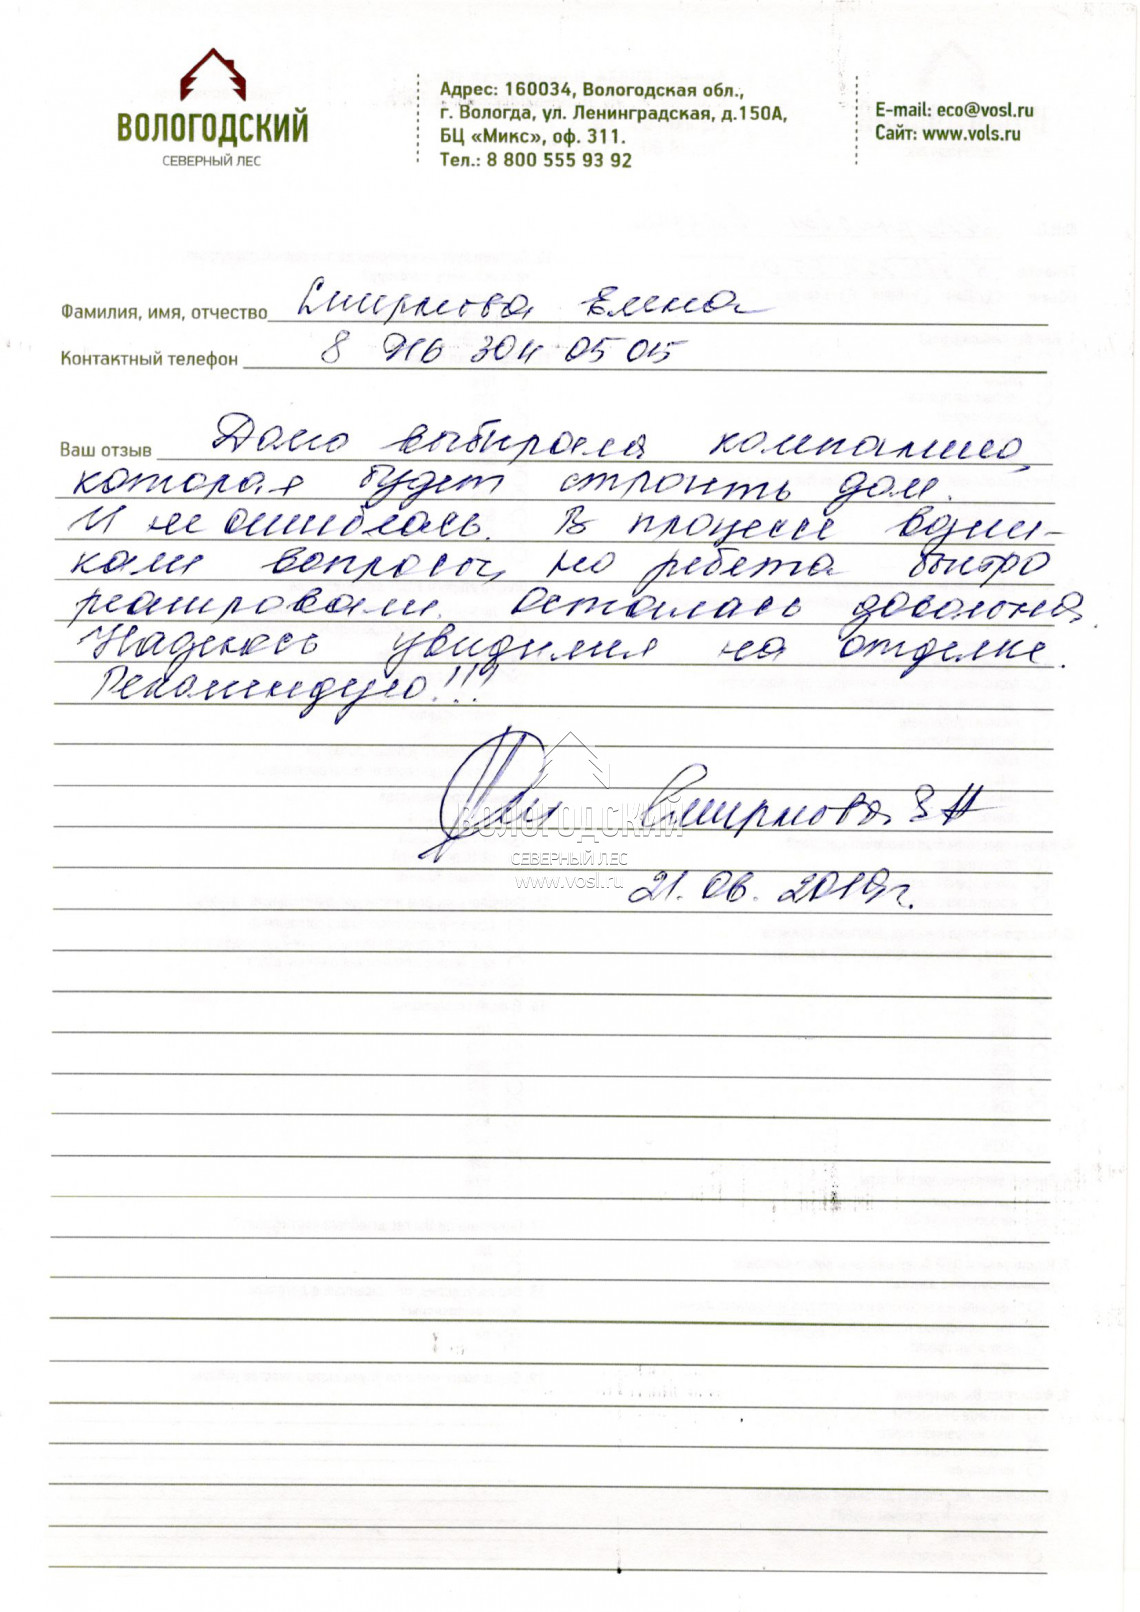 ВОЛОГОДСКИЙ
СЕВЕРНЫЙ ЛЕС
Адрес: 160034, Вологодская обл.,
г. Вологда, ул. Ленинградская, д.150А,
БЦ «Микс», оф. 311.
Тел.: 8 800 555 93 92
E-mail: eco@vosl.ru
Сайт: www.vols.ru
Фамилия, имя, отчество Смирнова Елена
Контактный телефон 8 916 304 05 05
Ваш отзыв Долго выбирала компанию,
которая будет строить дом.
И не ошиблась. В процессе возни-
кали вопросы, но ребята быстро
реагировали. Осталась довольна.
Надеюсь увидимся на отделке.
Рекомендую!!!
Смирнова
ВОЛОГОДСКИЙ
СЕВЕРНЫЙ ЛЕС
www.vosl.ru
21.06.2019г.